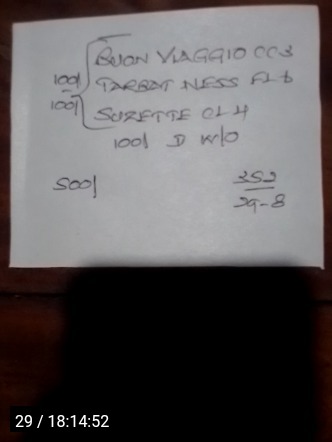 BUON VIAGGIO CC3
100/ TARBAT NESS FL 6
100/ SUZETTE CL 4
100/ D W/O
500/ 352
29-8
29 / 18:14:52